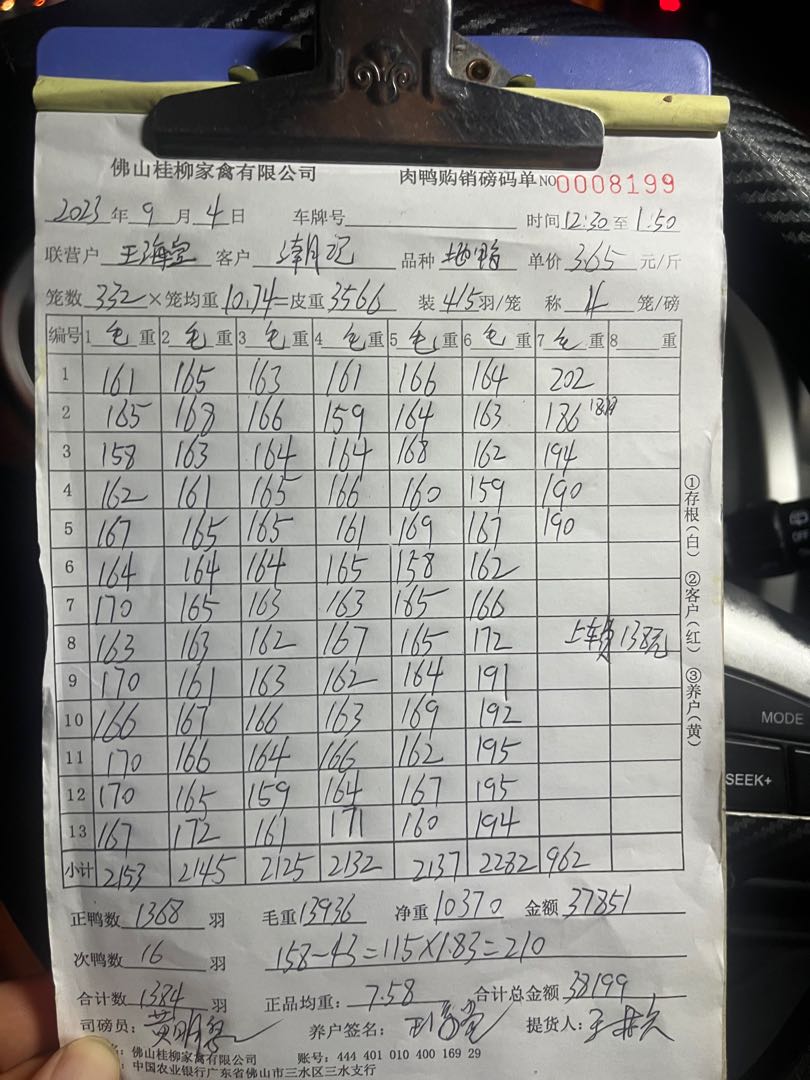 佛山桂柳家禽有限公司 肉鸭购销磅码单NO0008199
2023年9月4日 车牌号 时间12:30至1:50
联营户 客户 潮记 品种 单价3.65元/斤
笼数332×笼均重10.74=皮重3566 装4/5羽/笼 称4笼/磅
编号 1毛重 2毛重 3毛重 4毛重 5毛重 6毛重 7毛重 8重
1 161 165 163 161 166 164 202
2 165 168 166 159 164 163 186
3 158 163 164 164 168 162 194
4 162 161 165 166 160 159 190
5 167 165 165 161 169 167 190
6 164 164 164 165 158 162
7 170 165 163 163 165 166
8 163 163 162 167 165 172 上车费138元
9 170 161 163 162 164 191
10 166 167 166 163 169 192
11 170 166 164 166 162 195
12 170 165 159 164 167 195
13 167 172 161 171 160 194
小计 2153 2145 2125 2132 2137 2282 962
正鸭数1368羽 毛重13936 净重10370 金额37851
次鸭数16羽 158-43=115×1.83=210
合计数1384羽 正品均重:7.58 合计总金额38199
司磅员: 养户签名: 提货人:
名:佛山桂柳家禽有限公司 账号:444 401 010 400 169 29
中国农业银行广东省佛山市三水区三水支行
①存根(白) ②客户(红) ③养户(黄)
MODE
SEEK+
OFF